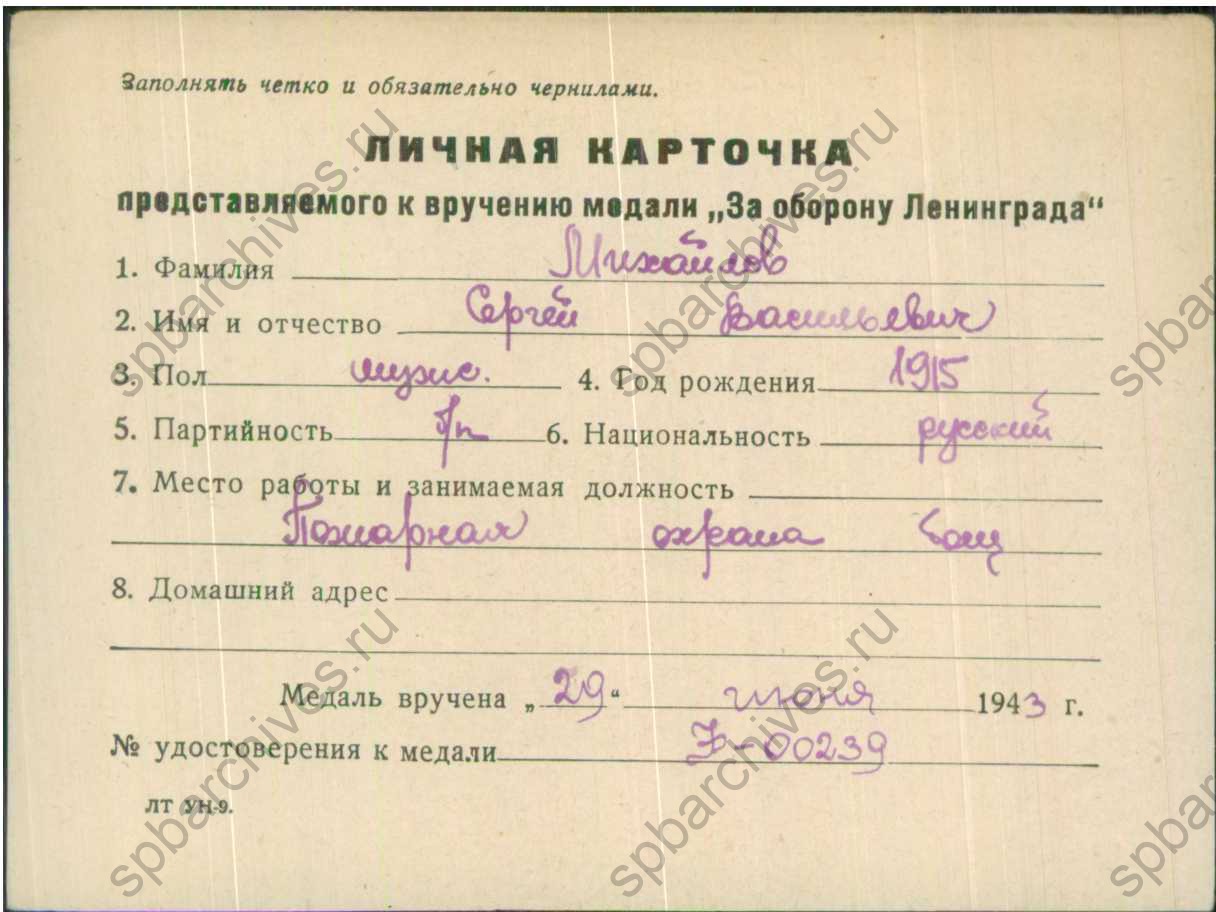 Заполнять четко и обязательно чернилами.
ЛИЧНАЯ КАРТОЧКА
представляемого к вручению медали „За оборону Ленинграда“
1. Фамилия Михайлов
2. Имя и отчество Сергей Васильевич
3. Пол мужс. 4. Год рождения 1915
5. Партийность б/п 6. Национальность русский
7. Место работы и занимаемая должность
Пожарная охрана боец
8. Домашний адрес
Медаль вручена „29“ июня 1943 г.
№ удостоверения к медали 00239
ЛТ УН-9.
spbarchives.ru
spbarchives.ru
spbarchives.ru
spbarchives.ru